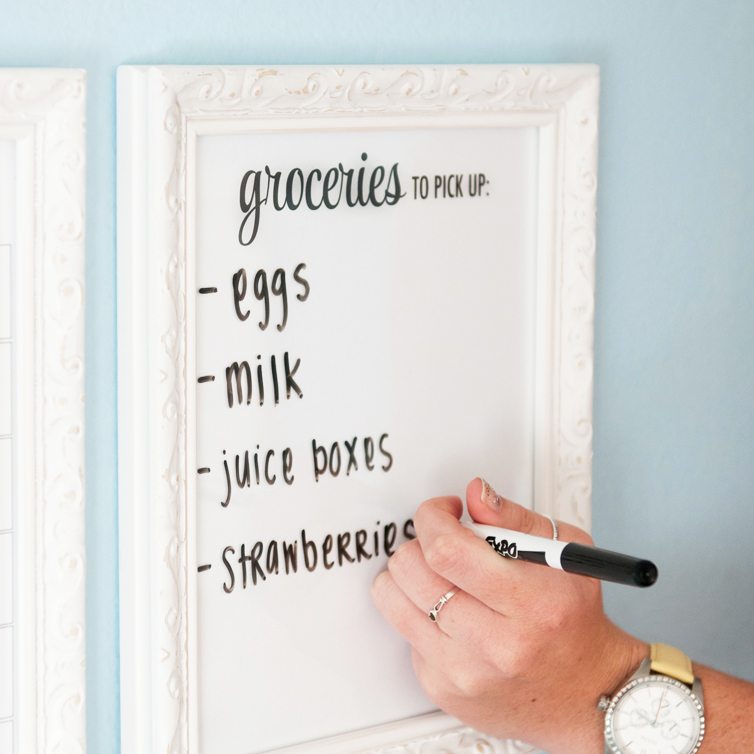 groceries TO PICK UP:
- eggs
- milk
- juice boxes
- strawberries
EXPO